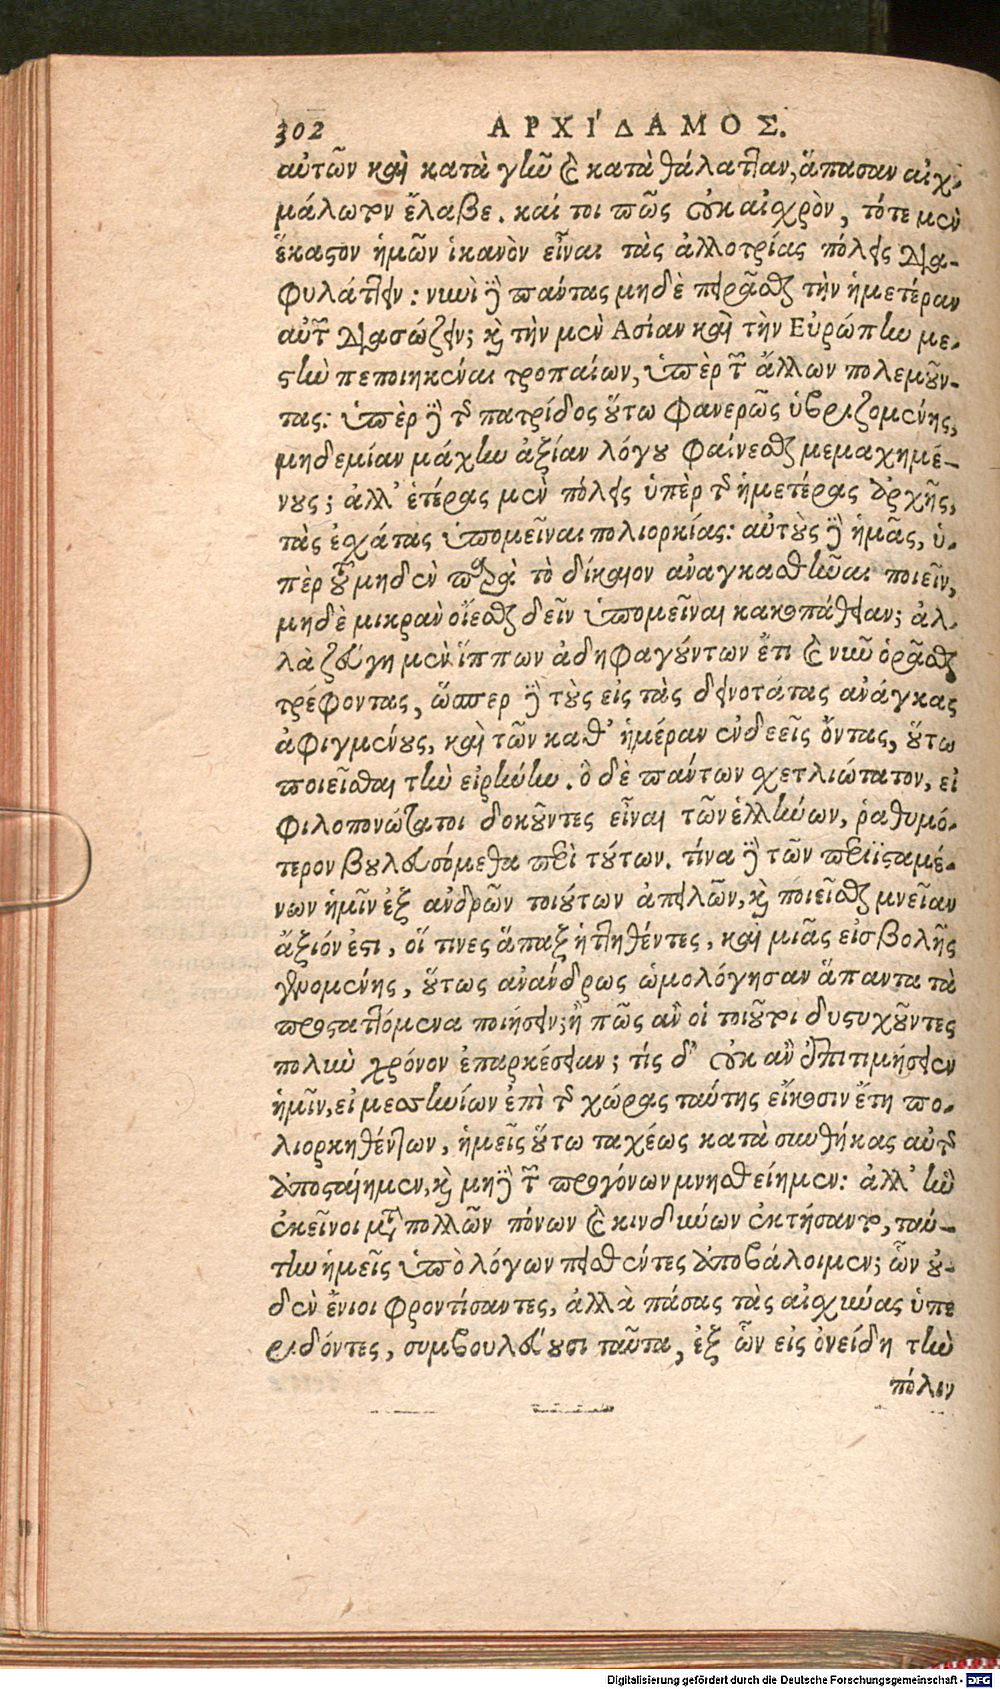 302 ΑΡΧΙ´ΔΑΜΟΣ.
αὐτῶν καὶ κατὰ γῆν καὶ κατὰ θάλατταν, ἅπασαν αἰχ-
μάλωτον ἔλαβε. καί τοι πῶς οὐκ αἰχρὸν, τότε μὲν
ἕκαστον ἡμῶν ἱκανὸν εἶναι τὰς ἀλλοτρίας πόλεις δια-
φυλάττειν: νυνὶ δὲ πάντας μηδὲ πειρᾶσθαι τὴν ἡμετέραν
αὐτῶν διασώζειν; καὶ τὴν μὲν Ασίαν καὶ τὴν Εὐρώπην με-
στὴν πεποιηκέναι τροπαίων, ὑπὲρ τῶν ἄλλων πολεμοῦν-
τας: ὑπὲρ δὲ τῆς πατρίδος οὕτω φανερῶς ὑβριζομένης,
μηδεμίαν μάχην ἀξίαν λόγου φαίνεσθαι μεμαχημέ-
νους; ἀλλ' ἑτέρας μὲν πόλεις ὑπὲρ τῆς ἡμετέρας ἀρχῆς,
τὰς ἐσχάτας ὑπομεῖναι πολιορκίας: αὐτοὺς δὲ ἡμᾶς, ὑ-
πὲρ τοῦ μηδὲν παρὰ τὸ δίκαιον ἀναγκασθῆναι ποιεῖν,
μηδὲ μικρὰν οἴεσθαι δεῖν ὑπομεῖναι κακοπάθειαν; ἀλ-
λὰ ζεύγη μὲν ἵππων ἀδηφαγούντων ἔτι καὶ νῦν ὁρᾶσθαι
τρέφοντας, ὥσπερ δὲ τοὺς εἰς τὰς δεινοτάτας ἀνάγκας
ἀφιγμένους, καὶ τῶν καθ' ἡμέραν ἐνδεεῖς ὄντας, οὕτω
ποιεῖσθαι τὴν εἰρήνην. ὃ δὲ πάντων σχετλιώτατον, εἰ
φιλοπονώτατοι δοκοῦντες εἶναι τῶν ἑλλήνων, ῥαθυμό-
τερον βουλευσόμεθα περὶ τούτων. τίνα δὲ τῶν περιϊσταμέ-
νων ἡμῖν ἐξ ἀνδρῶν τοιούτων ἀπειλῶν, καὶ ποιεῖσθαι μνεῖαν
ἄξιόν ἐστι, οἵ τινες ἅπαξ ἡττηθέντες, καὶ μιᾶς εἰσβολῆς
γενομένης, οὕτως ἀνάνδρως ὡμολόγησαν ἅπαντα τὰ
προσταττόμενα ποιήσειν; ἢ πῶς ἂν οἱ τοιοῦτοι δυστυχοῦντες
πολὺν χρόνον ἐπαρκέσειαν; τίς δ' οὐκ ἂν ἐπιτιμήσειεν
ἡμῖν, εἰ μεσσηνίων ἐπὶ τῆς χώρας ταύτης εἴκοσιν ἔτη πο-
λιορκηθέντων, ἡμεῖς οὕτω ταχέως κατὰ συνθήκας αὐτῆς
ἀποσταίημεν, καὶ μηδὲ τῶν προγόνων μνησθείημεν: ἀλλ' ἣν
ἐκεῖνοι μετὰ πολλῶν πόνων καὶ κινδύνων ἐκτήσαντο, ταύ-
την ἡμεῖς ὑπὸ λόγων πεισθέντες ἀποβάλοιμεν; ὧν οὐ-
δὲν ἔνιοι φροντίσαντες, ἀλλὰ πάσας τὰς αἰσχύνας ὑπε
ριδόντες, συμβουλεύουσι ταῦτα, ἐξ ὧν εἰς ὀνείδη τὴν
πόλιν
Digitalisierung gefördert durch die Deutsche Forschungsgemeinschaft - DFG